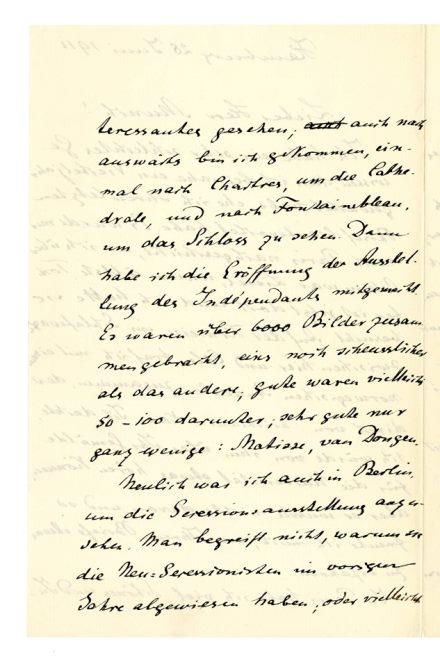 teressantes gesehen; auch auch nach
auswärts bin ich gekommen, ein-
mal nach Chartres, um die Cathe-
drale, und nach Fontainebleau,
um das Schloss zu sehen. Dann
habe ich die Eröffnung der Ausstel-
lung des Indépendants mitgemacht
Es waren über 6000 Bilder zusam
mengebracht, eins noch scheusslicher
als das andere; gute waren vielleicht
50 - 100 darunter, sehr gute nur
ganz wenige: Matisse, van Dongen.
Neulich war ich auch in Berlin,
um die Secessionsausstellung anzu-
sehen. Man begreift nicht, warum sie
die Neu=Secessionisten im vorigen
Jahre abgewiesen haben, oder vielleicht